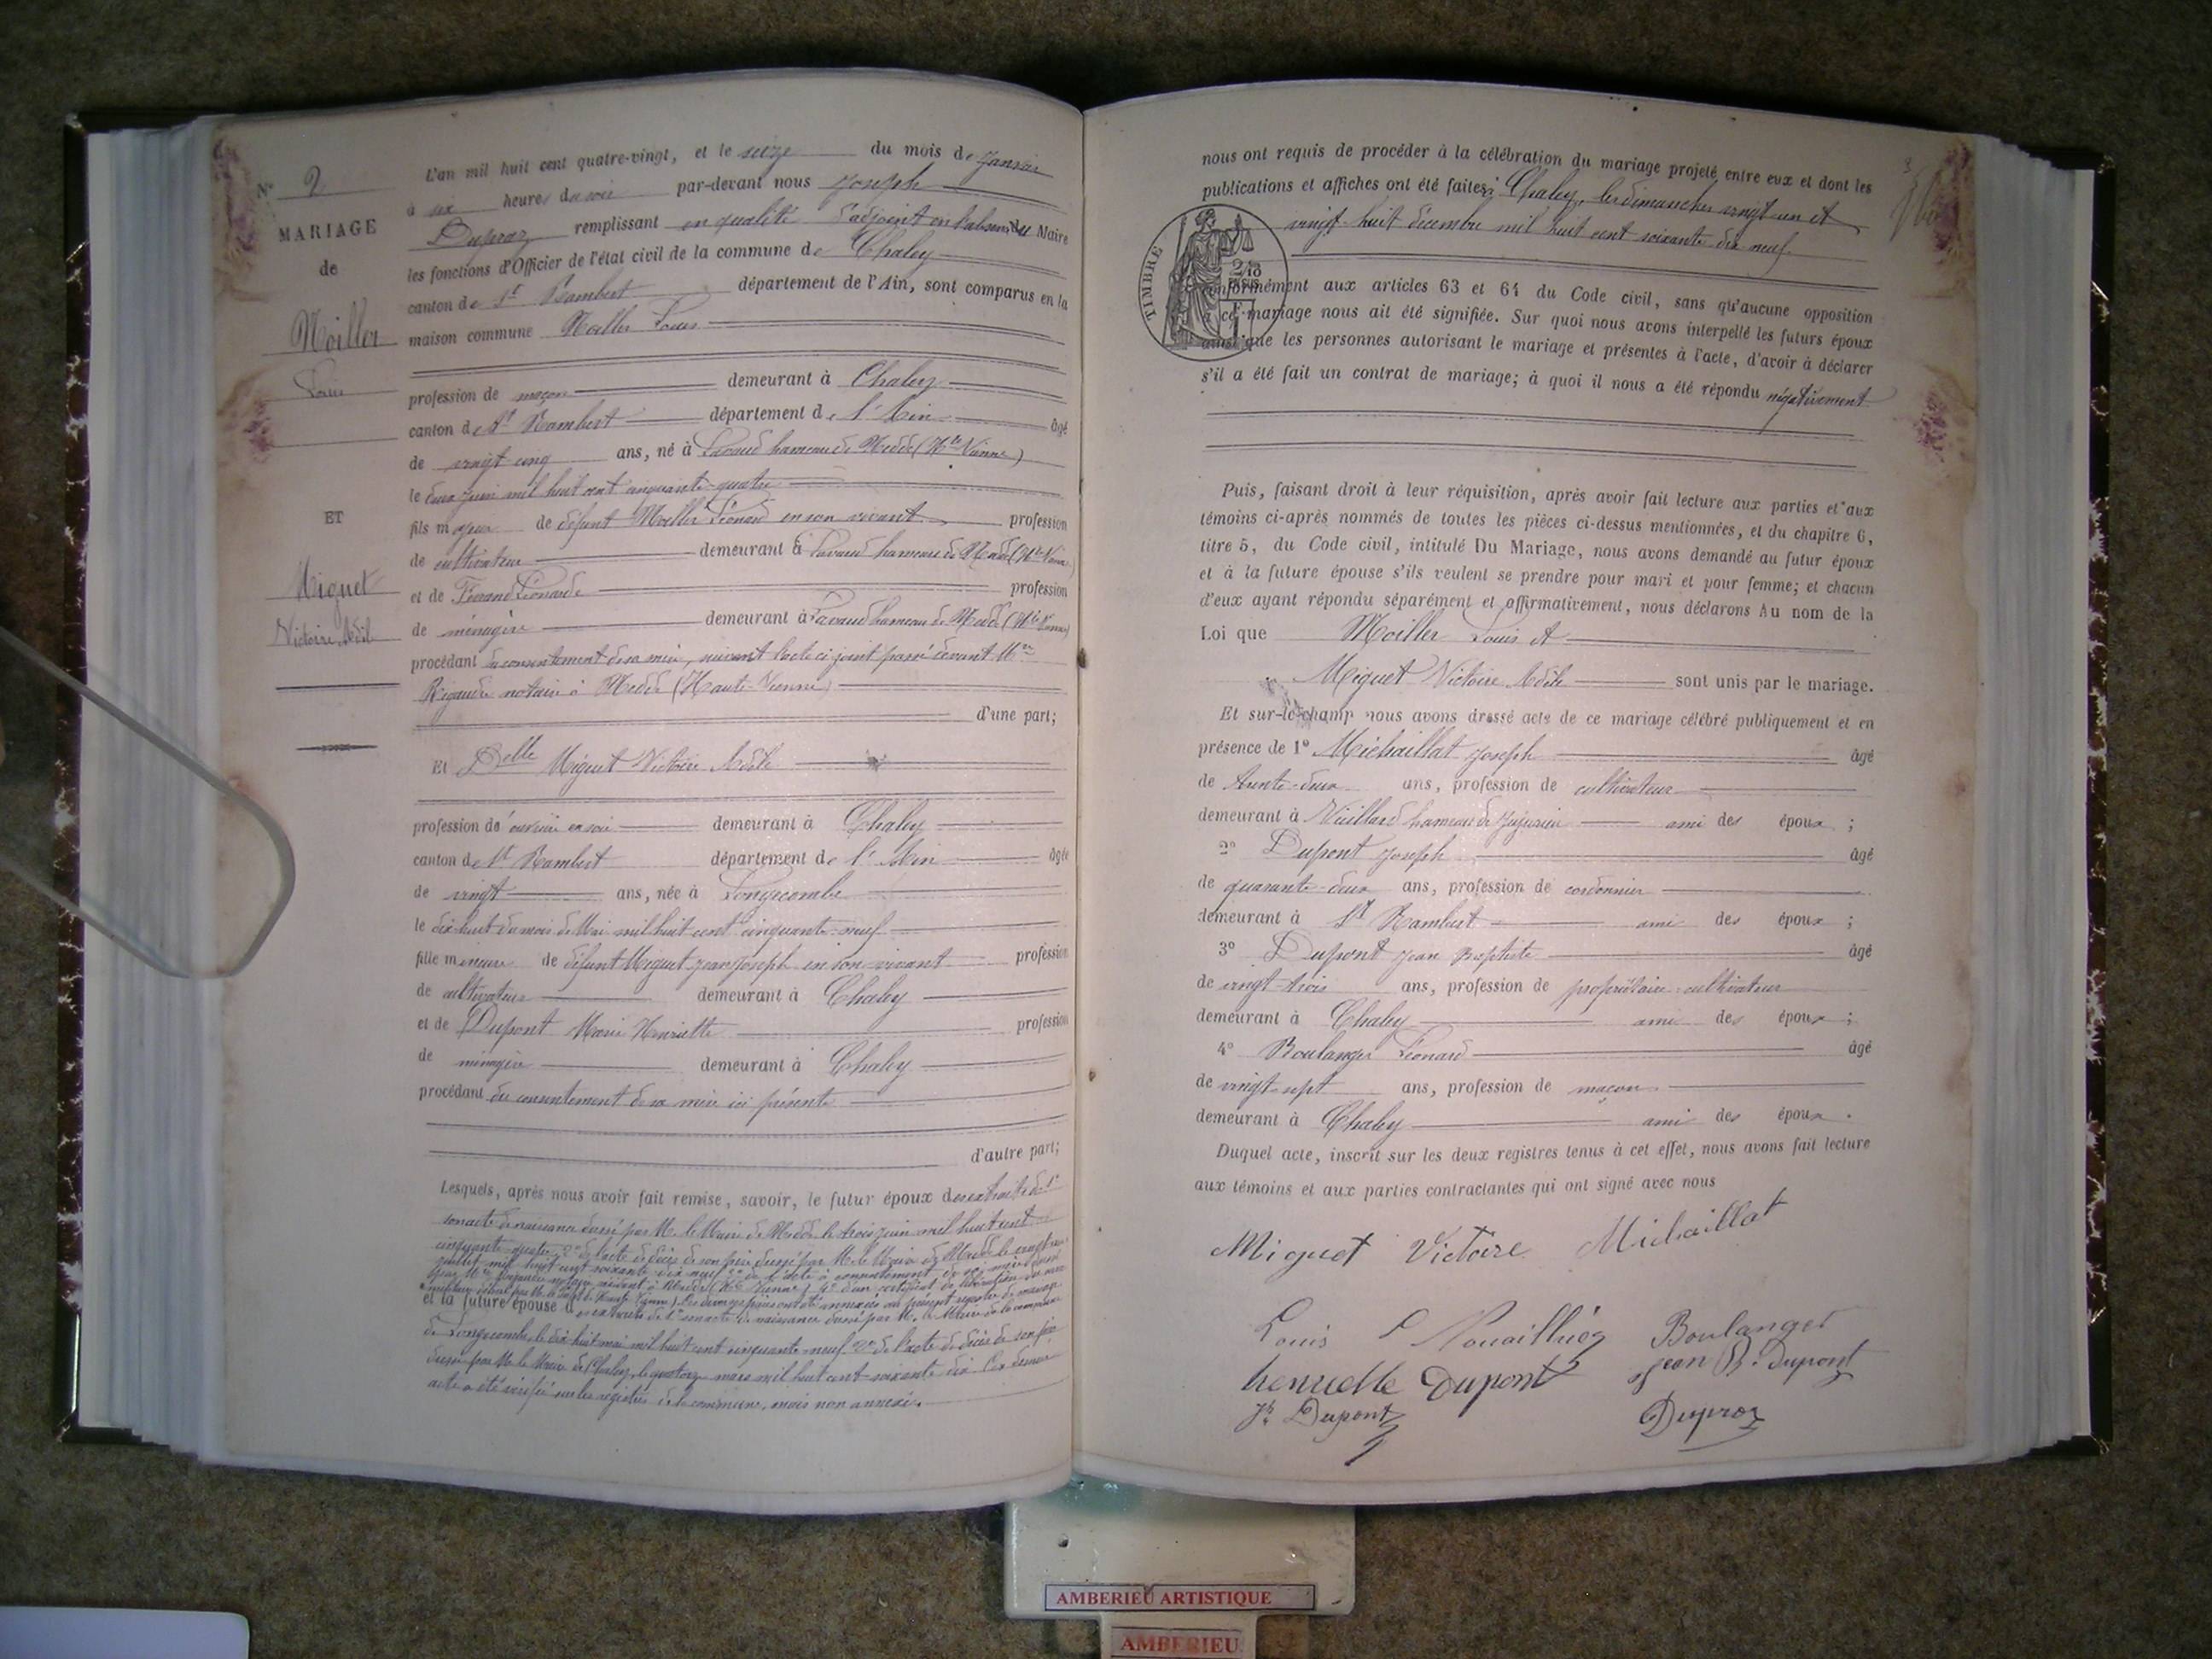 N° 2
MARIAGE
de
Moiller
Louis
ET
Miguet
Victoire Adèle
L'an mil huit cent quatre-vingt, et le seize du mois de Janvier
à six heures du soir par-devant nous Joseph
Dupraz remplissant en qualité d'adjoint en l'absence du Maire
les fonctions d'Officier de l'état civil de la commune de Chaley
canton de St Rambert département de l'Ain, sont comparus en la
maison commune Moiller Louis
profession de maçon demeurant à Chaley
canton de St Rambert département de l'Ain âgé
de vingt cinq ans, né à Lavaud hameau de Nedde (Hte Vienne)
le deux juin mil huit cent cinquante-quatre
fils majeur de défunt Moiller Léonard en son vivant profession
de cultivateur demeurant à Lavaud hameau de Nedde (Hte Vienne)
et de Léonarde profession
de ménagère demeurant à Lavaud hameau de Nedde (Hte Vienne)
procédant du consentement de sa mère, suivant l'acte ci-joint passé devant Me
Rigaudie notaire à Nedde (Haute-Vienne)
d'une part;
Et Delle Miguet Victoire Adèle
profession d'ouvrière en soie demeurant à Chaley
canton de St Rambert département de l'Ain âgée
de vingt ans, née à Longecombe
le dix-huit du mois de Mai mil huit cent cinquante-neuf
fille mineure de défunt Miguet Jean Joseph en son vivant profession
de cultivateur demeurant à Chaley
et de Dupont Marie Henriette profession
de ménagère demeurant à Chaley
procédant du consentement de sa mère ici présente
d'autre part;
Lesquels, après nous avoir fait remise, savoir, le futur époux des extraits de 1°
son acte de naissance dressé par M. le Maire de Nedde le trois juin mil huit cent
cinquante-quatre 2° de l'acte de décès de son père dressé par M. le Maire de Nedde le vingt
juillet mil huit cent soixante dix neuf 3° de l'acte de consentement de sa mère dressé
par Me Rigaudie notaire résidant à Nedde (Hte Vienne) 4° d'un certificat de libération du service
militaire délivré par M. le Vienne). Ces diverses pièces ont été annexées au présent registre de mariage
et la future épouse des extraits de 1° son acte de naissance dressé par M. le Maire de la commune
de Longecombe, le dix-huit mai mil huit cent cinquante-neuf 2° de l'acte de décès de son père
dressé par M. le Maire de Chaley, le quatorze mars mil huit cent soixante dix. Ce dernier
acte a été vérifié sur les registres de la commune, mais non annexé.
nous ont requis de procéder à la célébration du mariage projeté entre eux et dont les
publications et affiches ont été faites à Chaley, les dimanches vingt-un et
vingt-huit décembre mil huit cent soixante dix neuf.
TIMBRE
conformément aux articles 63 et 64 du Code civil, sans qu'aucune opposition
à ce mariage nous ait été signifiée. Sur quoi nous avons interpellé les futurs époux
ainsi que les personnes autorisant le mariage et présentes à l'acte, d'avoir à déclarer
s'il a été fait un contrat de mariage; à quoi il nous a été répondu négativement
Puis, faisant droit à leur réquisition, après avoir fait lecture aux parties et aux
témoins ci-après nommés de toutes les pièces ci-dessus mentionnées, et du chapitre 6,
titre 5, du Code civil, intitulé Du Mariage, nous avons demandé au futur époux
et à la future épouse s'ils veulent se prendre pour mari et pour femme; et chacun
d'eux ayant répondu séparément et affirmativement, nous déclarons Au nom de la
Loi que Moiller Louis et
Miguet Victoire Adèle sont unis par le mariage.
Et sur-le-champ nous avons dressé acte de ce mariage célébré publiquement et en
présence de 1° Michaillat Joseph âgé
de trente-deux ans, profession de cultivateur
demeurant à Vieillard hameau de Jujurieu ami des époux ;
2° Dupont Joseph âgé
de quarante-deux ans, profession de cordonnier
demeurant à St Rambert ami des époux ;
3° Dupont Jean Baptiste âgé
de vingt-trois ans, profession de propriétaire-cultivateur
demeurant à Chaley ami des époux ;
4° Boulanger Léonard âgé
de vingt-sept ans, profession de maçon
demeurant à Chaley ami des époux .
Duquel acte, inscrit sur les deux registres tenus à cet effet, nous avons fait lecture
aux témoins et aux parties contractantes qui ont signé avec nous
Miguet Victoire Michaillat
Louis Boulanger
henriette Dupont Jean B. Dupont
Jh Dupont Dupraz
AMBERIEU ARTISTIQUE
AMBERIEU